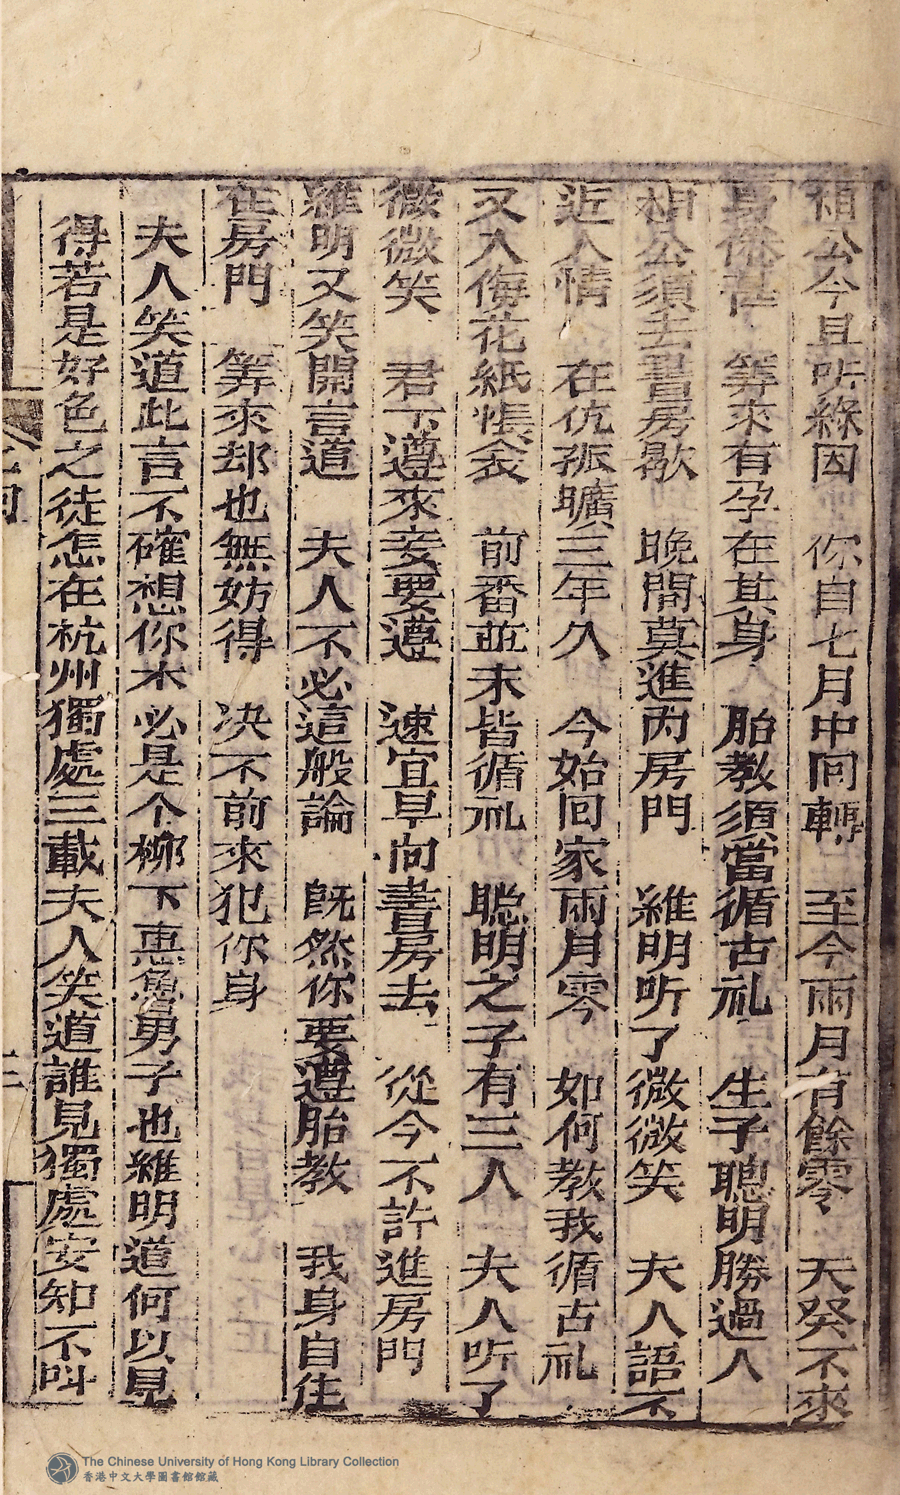 相公今且听緣因　你自七月中间轉　至今兩月有餘零　天癸不來
身倦甚　筭來有孕在其身　胎教須當循古礼　生子聰明勝過人
相公須去書房歇　晚間莫進内房門　維明听了微微笑　夫人語不
近人情　在伉孤曠三年久　今始回家兩月零　如何教我循古礼
又入傷花紙帳衾　前番並未皆循礼　聡明之子有三人　夫人听了
微微笑　君下遵來妾要遵　速宜早向書房去　從今不許進房門
維明又笑開言道　夫人不必這般論　既然你要遵胎教　我身自住
在房門　筭來却也無妨得　决不前來犯你身
夫人笑道此言不確想你木必是个柳下惠魯男子也維明道何以見
得若是好色之徒怎在杭州獨處三載夫人笑道誰見獨處安知不呌
The Chinese University of Hong Kong Library Collection
香港中文大學圖書館館藏